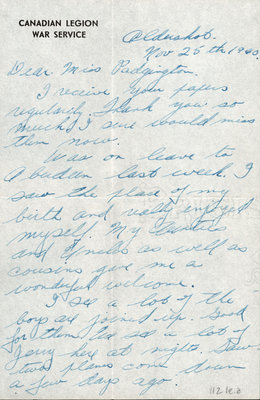 CANADIAN LEGION
WAR SERVICE
Aldershot.
Nov 25th 1940.
Dear Miss
I receive your papers
regularly. Thank you so
much! I sure would miss
them now.
Was on leave to
last week. I
saw the place of my
birth and really enjoyed
myself. My Aunties
and Uncles as well as
cousins gave me a
wonderful welcome.
I see a lot of the
boys are joined up. Good
for them. We see a lot of
Jerry here at nights. Saw
two planes come down
a few days ago.